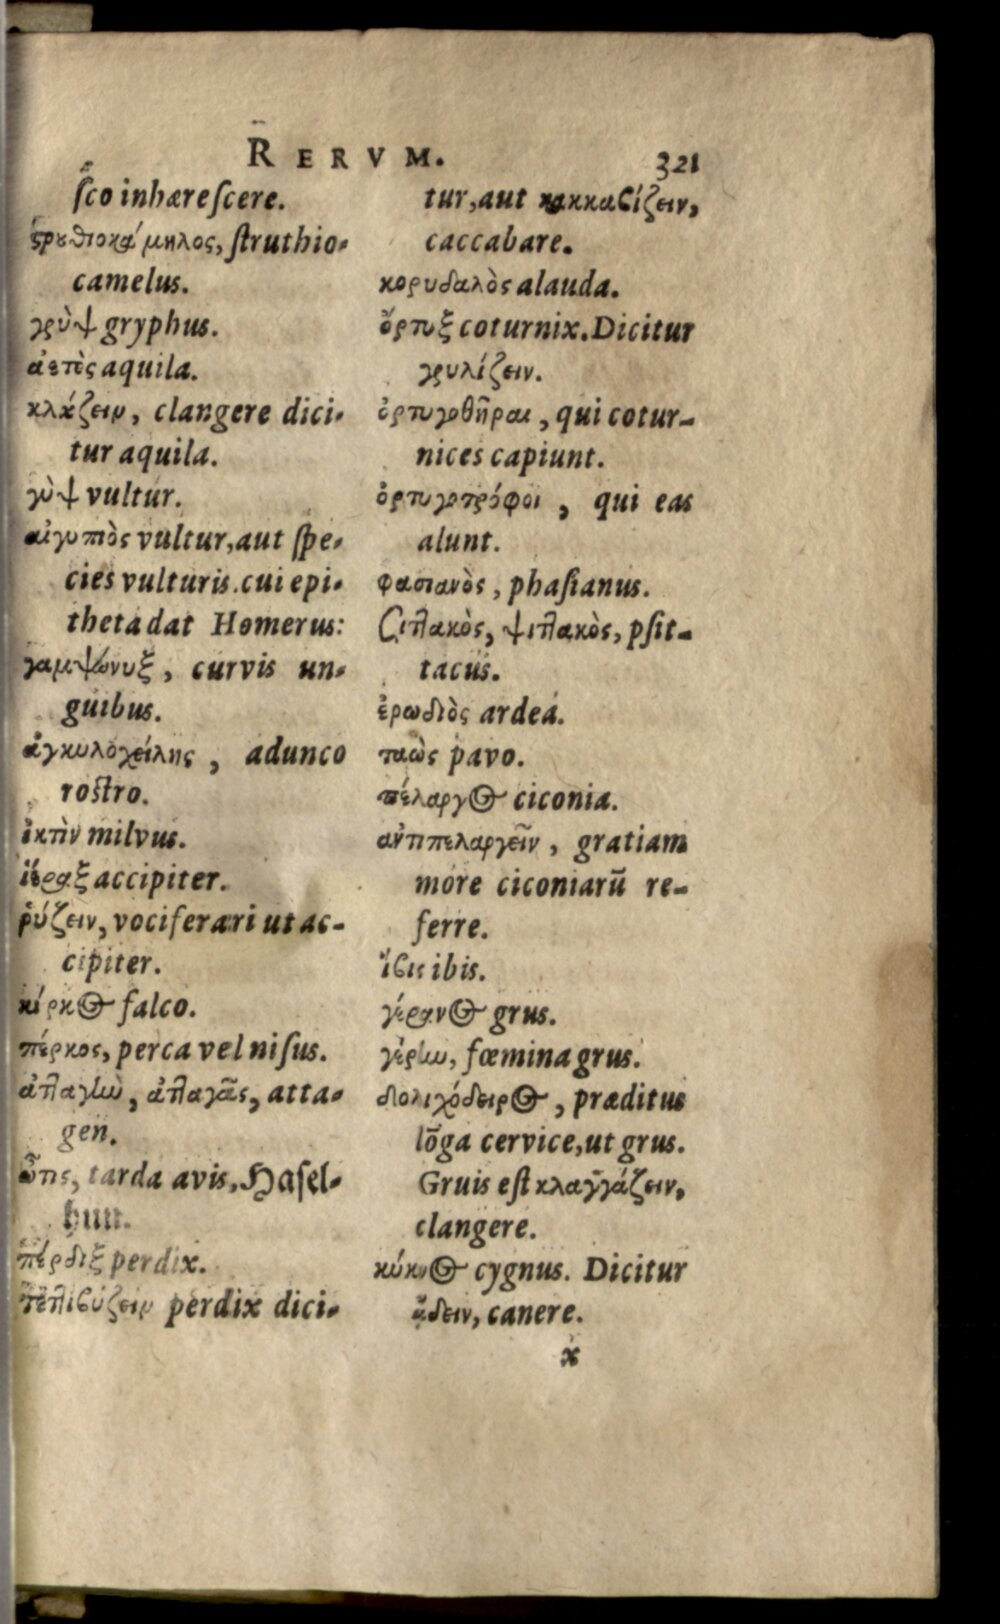 RERVM. 321
sco inhærescere.
στρουθιοκάμηλος, struthio-
camelus.
γρὺψ gryphus.
ἀετὸς aquila.
κλάζειν, clangere dici-
tur aquila.
γὺψ vultur.
αἰγυπιὸς vultur, aut spe-
cies vulturis. cui epi-
theta dat Homerus:
γαμψώνυξ, curvis un-
guibus.
ἀγκυλοχείλης, adunco
rostro.
ἰκτὶν milvus.
ἱέραξ accipiter.
ῥύζειν, vociferari ut ac-
cipiter.
κίρκος falco.
πέρκος, perca vel nisus.
ἀτταγὴν, ἀτταγᾶς, atta-
gen.
ὦτις, tarda avis, Hasel-
hun.
πέρδιξ perdix.
τεττιβύζειν perdix dici-
tur, aut κακκαβίζειν,
caccabare.
κορυδαλὸς alauda.
ὄρτυξ coturnix. Dicitur
γρυλίζειν.
ὀρτυγοθῆραι, qui cotur-
nices capiunt.
ὀρτυγοτρόφοι, qui eas
alunt.
φασιανὸς, phasianus.
σιττακὸς, ψιττακὸς, psit-
tacus.
ἐρωδιὸς ardea.
ταὼς pavo.
πέλαργος ciconia.
ἀντιπελαργεῖν, gratiam
more ciconiarū re-
ferre.
ἴβις ibis.
γέρανος grus.
γέρην, fœmina grus.
δολιχόδειρος, præditus
lōga cervice, ut grus.
Gruis est κλαγγάζειν,
clangere.
κύκνος cygnus. Dicitur
ᾄδειν, canere.
x